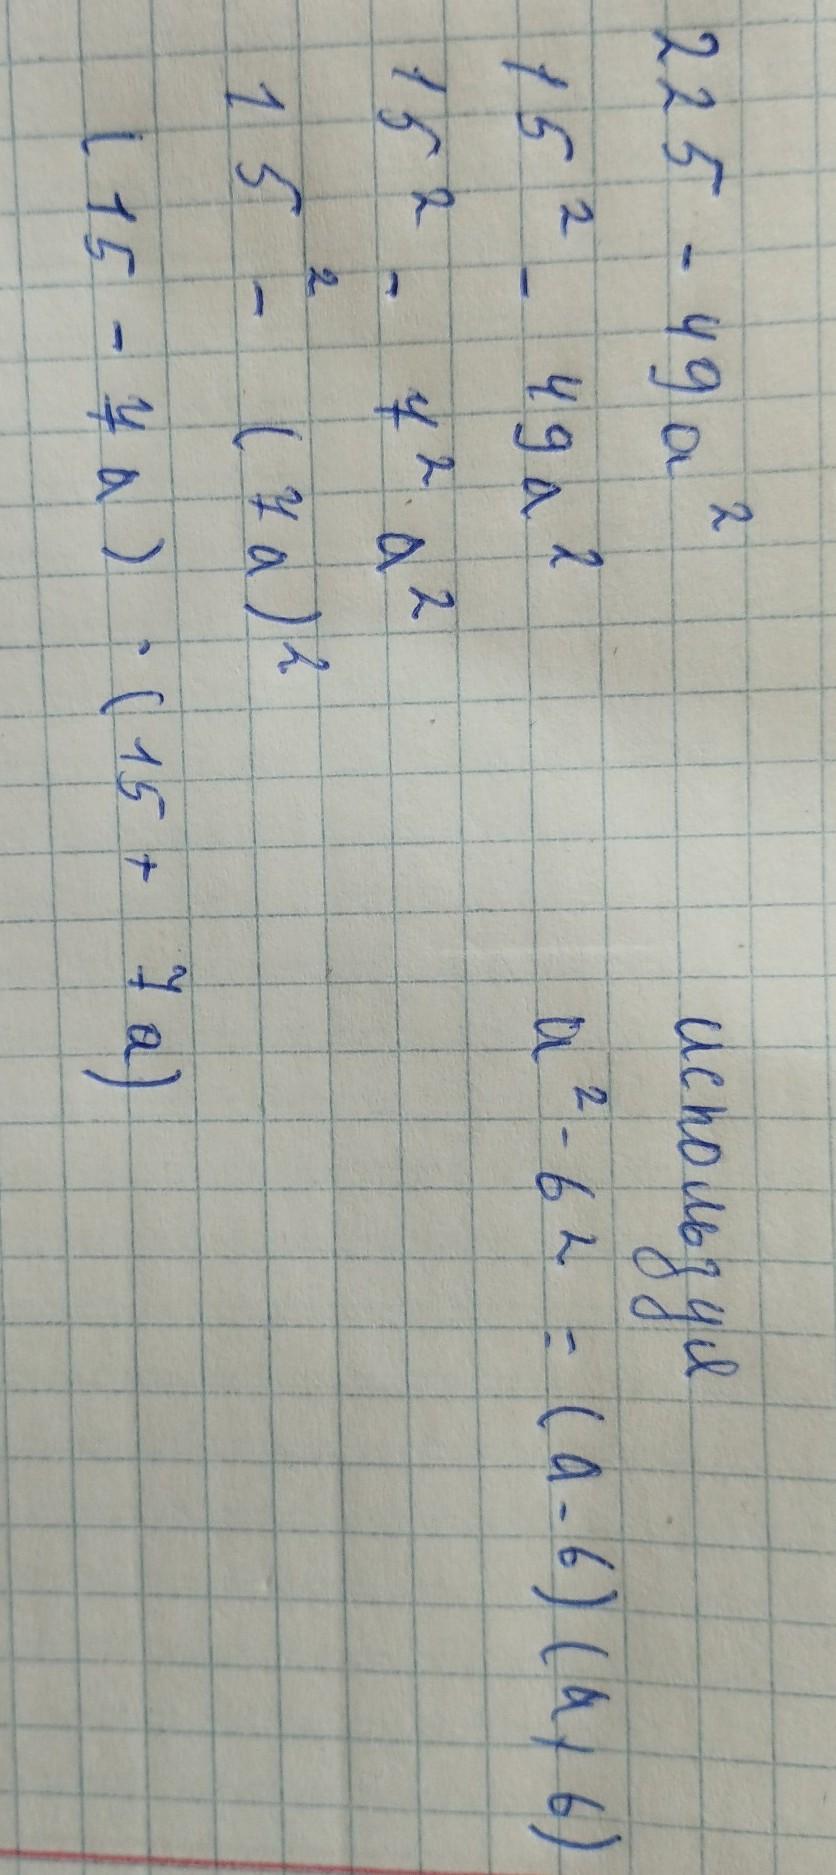 225 - 49a²
15² - 49a²
15² - 7²a²
15² - (7a)²
(15 - 7a) · (15 + 7a)
используя
a² - b² = (a - b)(a + b)